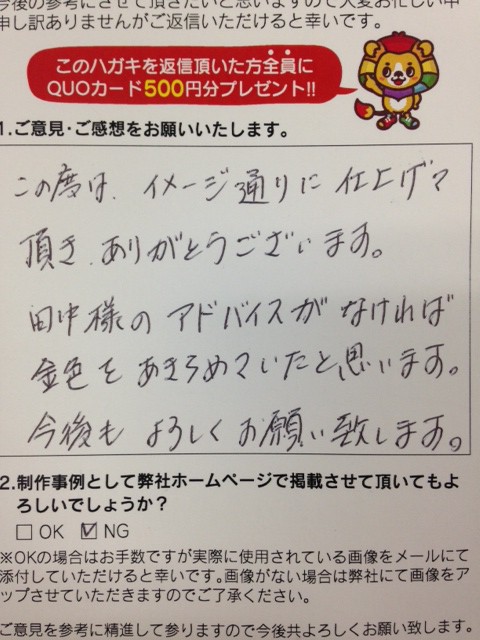 今後の参考にさせて頂きたいと思いますので大変お忙しい中
申し訳ありませんがご返信いただけると幸いです。
このハガキを返信頂いた方全員に
QUOカード500円分プレゼント!!
1.ご意見・ご感想をお願いいたします。
この度は、イメージ通りに仕上げて
頂き、ありがとうございます。
田中様のアドバイスがなければ
金色をあきらめていたと思います。
今後もよろしくお願い致します。
2.制作事例として弊社ホームページで掲載させて頂いてもよ
ろしいでしょうか?
□ OK ☑ NG
※OKの場合はお手数ですが実際に使用されている画像をメールにて
添付していただけると幸いです。画像がない場合は弊社にて画像をア
ップさせていただきますのでご了承ください。
ご意見を参考に精進して参りますので今後共よろしくお願い致します。